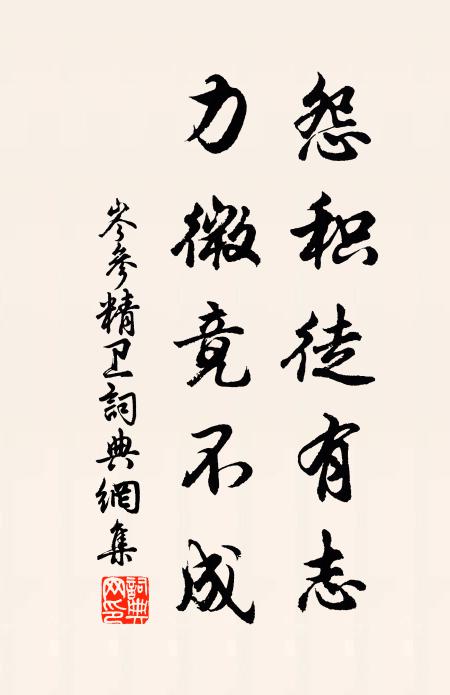 怨积徒有志
力微竟不成
岑参精卫詞典網集
詞典网印